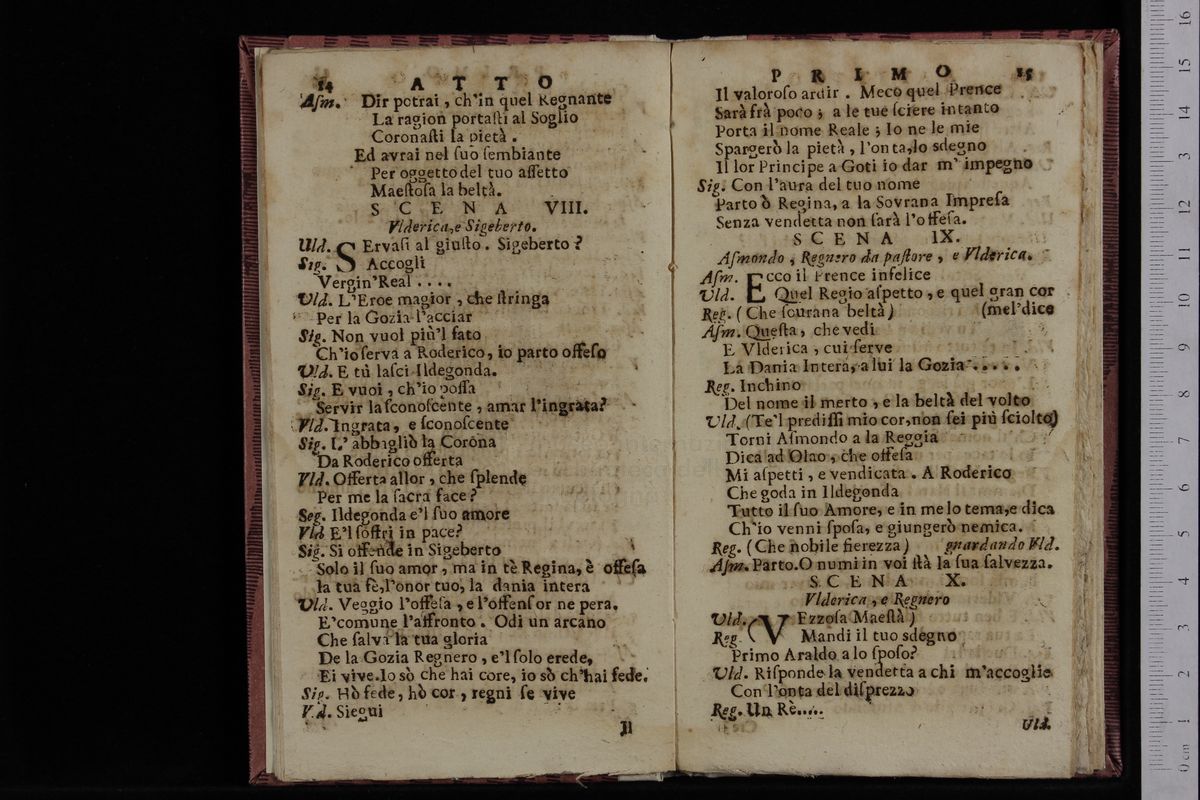 14 ATTO
Aſm. Dir potrai, ch'in quel Regnante
La ragion portaſti al Soglio
Coronaſti la pietà.
Ed avrai nel ſuo ſembiante
Per oggetto del tuo affetto
Maeſtoſa la beltà.
SCENA VIII.
Vlderica, e Sigeberto.
Uld. SErvaſi al giuſto. Sigeberto?
Sig. Accogli
Vergin'Real ....
Vld. L'Eroe magior, che ſtringa
Per la Gozia l'acciar
Sig. Non vuol più'l fato
Ch'io ſerva a Roderico, io parto offeſo
Vld. E tù laſci Ildegonda.
Sig. E vuoi, ch'io poſſa
Servir la ſconoſcente, amar l'ingrata?
Vld. Ingrata, e ſconoſcente
Sig. L' abbagliò la Corona
Da Roderico offerta
Vld. Offerta allor, che ſplende
Per me la ſacra face?
Seg. Ildegonda e'l ſuo amore
Vld E'l ſoffri in pace?
Sig. Si offende in Sigeberto
Solo il ſuo amor, ma in tè Regina, è offeſa
la tua fè, l'onor tuo, la dania intera
Vld. Veggio l'offeſa, e l'offenſor ne pera.
E'comune l'affronto. Odi un arcano
Che ſalva la tua gloria
De la Gozia Regnero, e'l ſolo erede,
Ei vive. Io sò che hai core, io sò ch'hai fede.
Sig. Hò fede, hò cor, regni ſe vive
Vld. Siegui
Il
PRIMO 15
Il valoroſo ardir. Meco quel Prence
Sarà frà poco; a le tue ſciere intanto
Porta il nome Reale; Io ne le mie
Spargerò la pietà, l'onta, lo sdegno
Il lor Principe a Goti io dar m' impegno
Sig. Con l'aura del tuo nome
Parto ò Regina, a la Sovrana Impreſa
Senza vendetta non ſarà l'offeſa.
SCENA IX.
Aſmondo, Regnero da paſtore, e Vlderica.
Aſm. ECco il Prence infelice
Vld. Quel Regio aſpetto, e quel gran cor
Reg. (Che ſcurana beltà) (mel'dice
Aſm. Queſta, che vedi
E Vlderica, cui ſerve
La Dania Intera, a lui la Gozia.....
Reg. Inchino
Del nome il merto, e la beltà del volto
Vld. (Te'l prediſſi mio cor, non ſei più ſciolto)
Torni Aſmondo a la Reggia
Dica ad Olao, che offeſa
Mi aſpetti, e vendicata. A Roderico
Che goda in Ildegonda
Tutto il ſuo Amore, e in me lo tema, e dica
Ch'io venni ſpoſa, e giungerò nemica.
Reg. (Che nobile fierezza) guardando Vld.
Aſm. Parto. O numi in voi ſtà la ſua ſalvezza.
SCENA X.
Vlderica, e Regnero
Vld. (VEzzoſa Maeſtà)
Reg. Mandi il tuo sdegno
Primo Araldo a lo ſpoſo?
Vld. Riſponde la vendetta a chi m'accoglie
Con l'onta del diſprezzo
Reg. Un Rè.....
Vld.